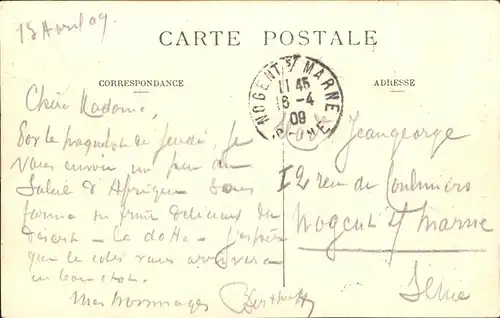 13 Avril 09
CARTE POSTALE
CORRESPONDANCE
ADRESSE
NOGENT S/ MARNE
11 45
16 - 4
09
SEINE
Chère Madame,
Par le paquebot de jeudi, je
vous envoie un peu du
Soleil d'Afrique sous
forme du fruit délicieux du
désert - la datte - J'espère
que le colis vous arrivera
en bon état.
Mes hommages
Jeangeorge
12 rue de Coulmiers
Nogent s/ Marne
Seine